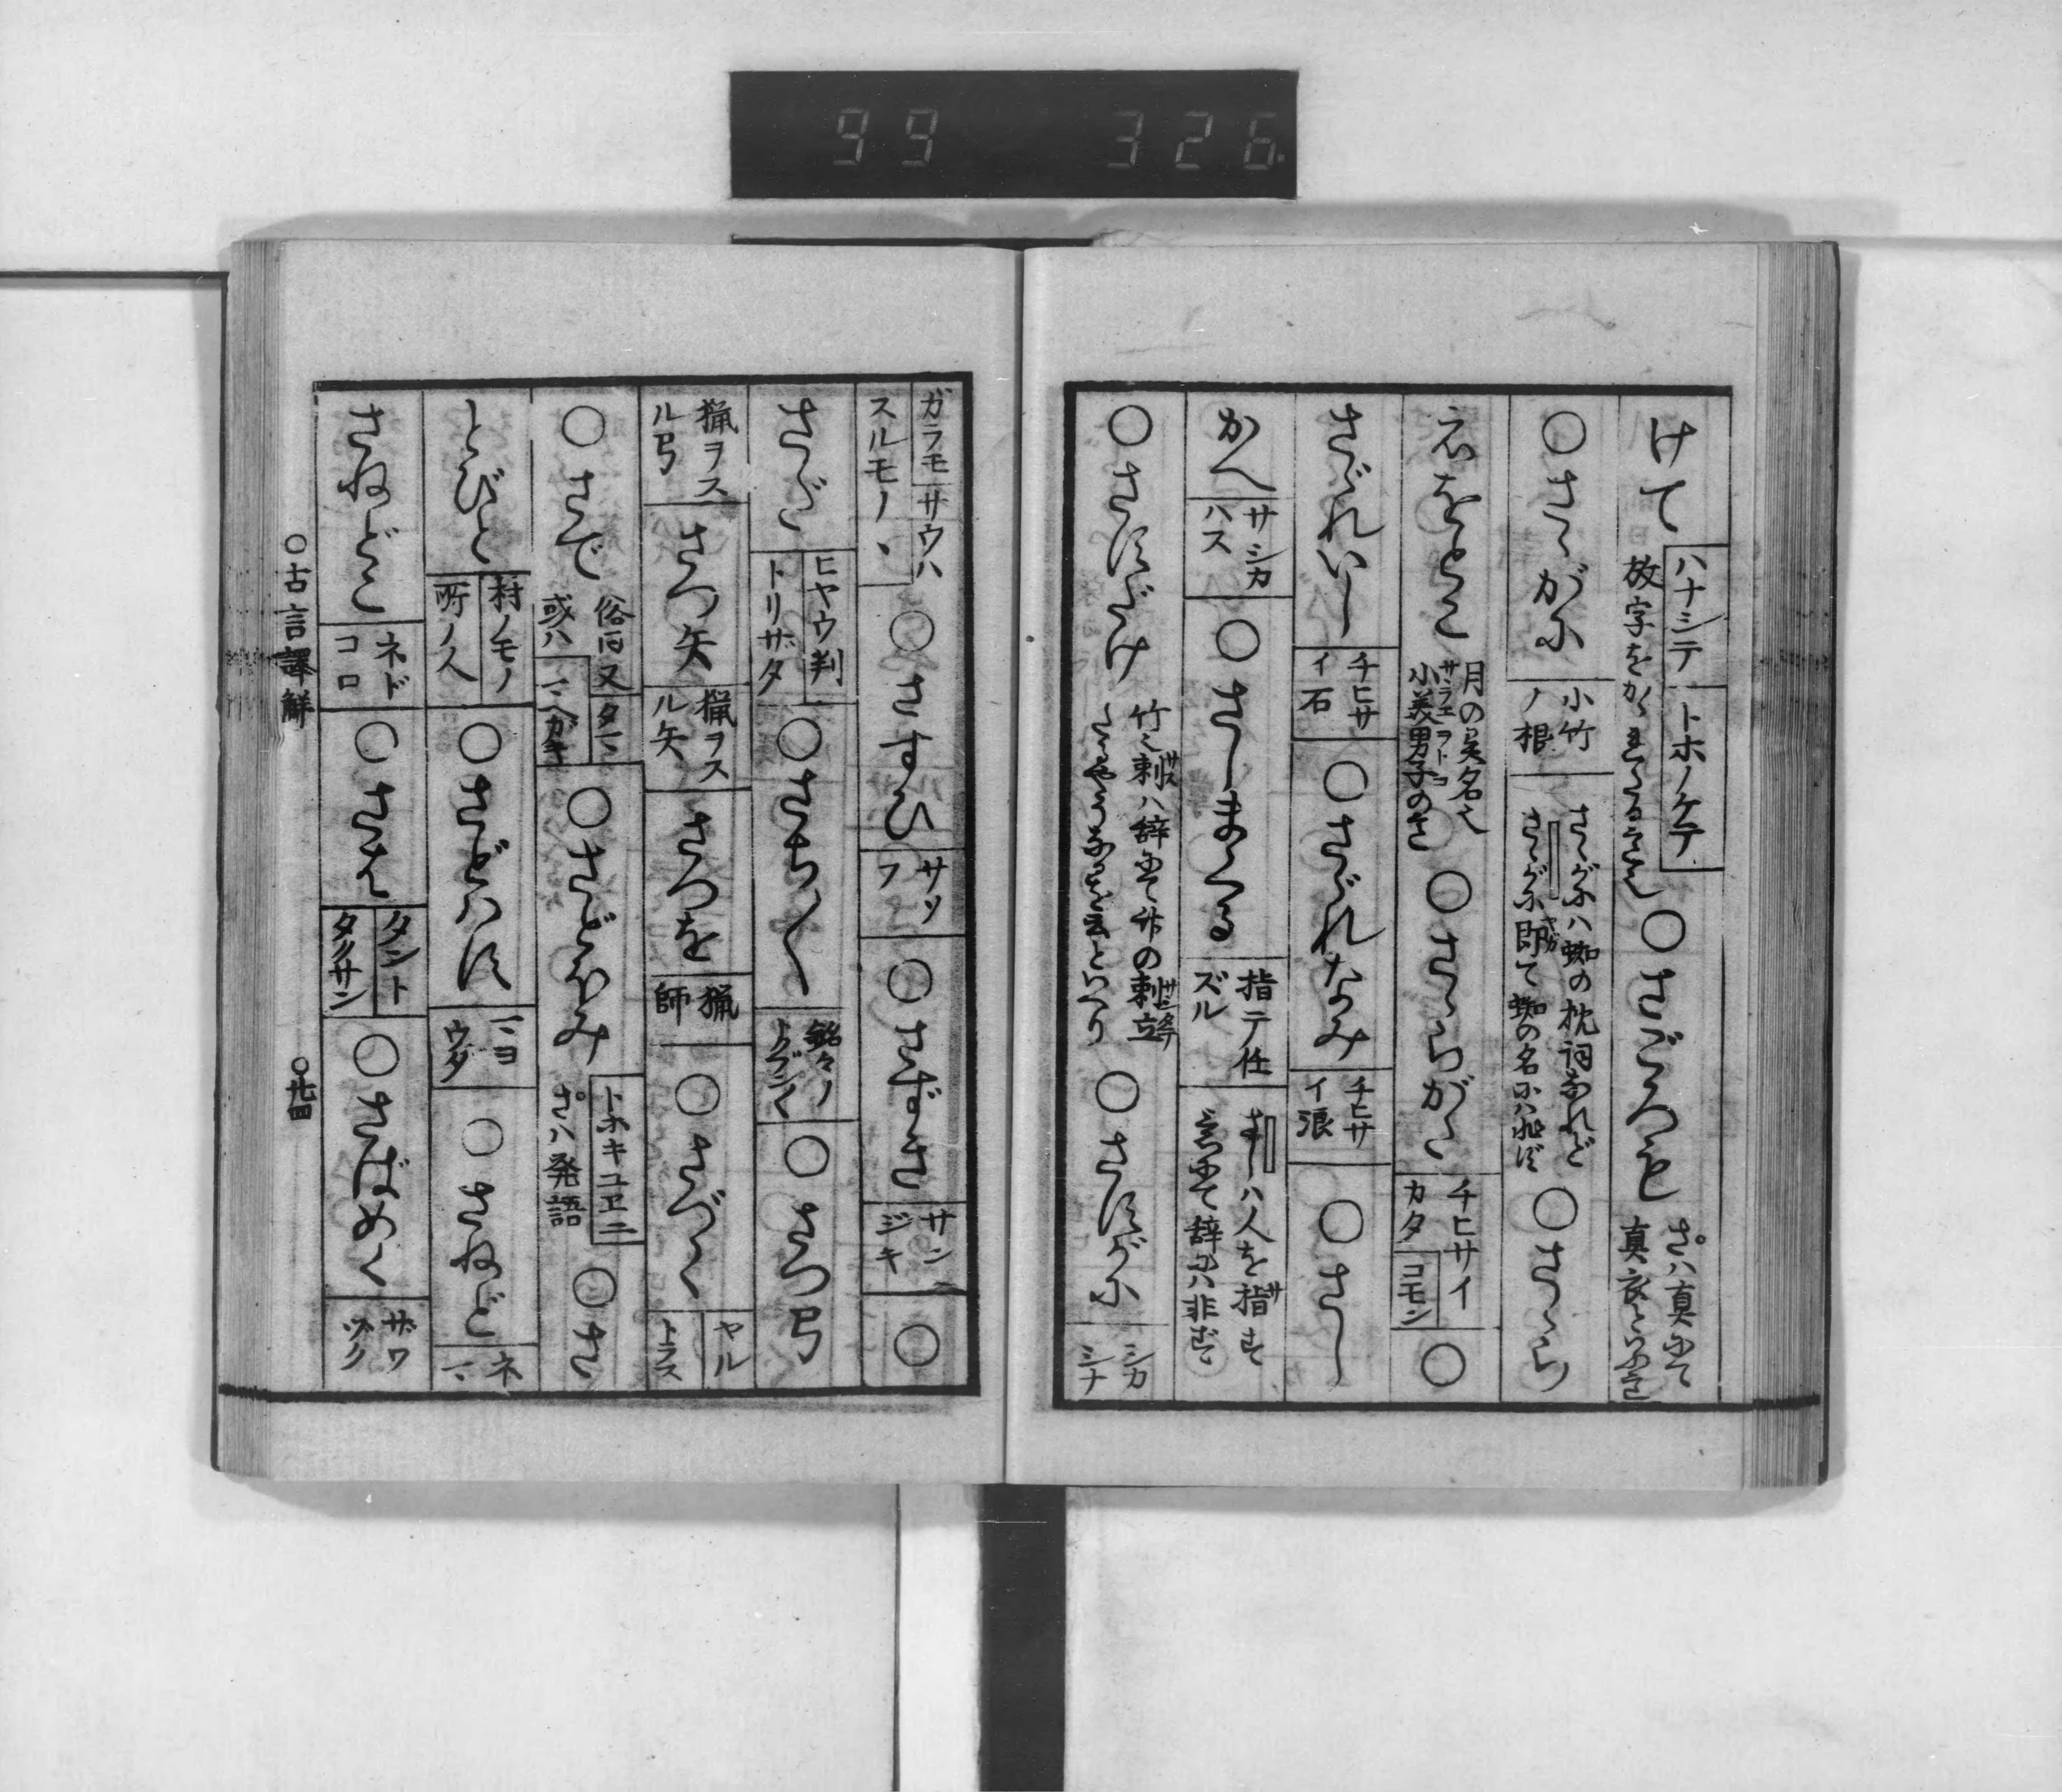 99 326
けて ハナシテ トホノケテ
放字をかゝまたるこゝろ也 ○さごろも さハ真にて
真衣といふこゝろ
○さゝがに 小竹
ノ根 さゝがにハ蜘の枕詞なれど
さゝがに即て蜘の名にハ非ず ○さゝら
えをとこ 月の異名也
小義男子のさ ○さゝらがた チヒサイ
カタ コモン ○
さゞれいし チヒサ
イ石 ○さゞれなみ チヒサ
イ浪 ○さし
かへ サシカ
ハス ○さしまくる 指テ任
ズル さしハ人を指す
言にて辞にハ非ず
○さすだけ 竹
ハ辞にて竹の刺立
といへり ○さすがに シカ
シナ
ガラモ サウハ
スルモノヽ ○さすひ サソ
フ ○さずき サン
ジキ ○
さだ ヒヤウ判
トリザタ ○さち〳〵 銘々ノ
トクブン〳〵 ○さつ弓
猟ヲス
ル弓 さつ矢 猟ヲス
ル矢 さつを 猟
師 ○さづく ヤル
トラス
○さで 俗ニ又 タマ
或ハ ○さどほみ トホキユヱニ
さハ発語 ○さ
とびと 村ノモノ
所ノ人 ○さどはす マヨ
ウダ ○さねど ネ
マ
さねどこ ネド
コロ ○さは タント
タクサン ○さばめく ザワ
ヅク
○古言譯解 ○廿四